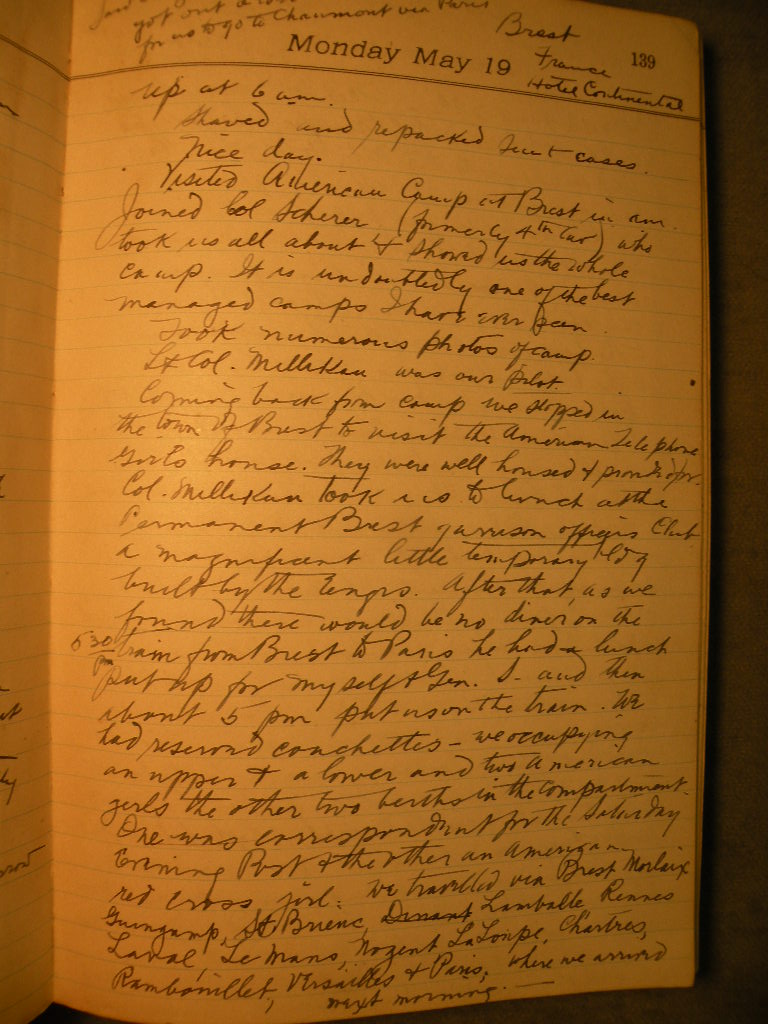 got out a
for us to go to Chaumont via Paris
Monday May 19
139
Brest
France
Hotel Continental
up at 6 am.
Shaved and repacked suit cases.
Nice day.
Visited American Camp at Brest in am.
Joined Col Scherer (formerly 4th Cav) who
took us all about & showed us the whole
camp. It is undoubtedly one of the best
managed camps I have ever seen
Took numerous photos of camp.
Lt Col. Millikan was our pilot.
Coming back from camp we stopped in
the town of Brest to visit the American Telephone
Girls house. They were well housed & provided for.
Col. Millikan took us to lunch at the
Permanent Brest garrison officers Club
a magnificent little temporary bldg
built by the Engrs. After that, as we
found there would be no diner on the
5 30 pm train from Brest to Paris he had a lunch
put up for myself & Gen. S. and then
about 5 pm put us on the train. We
had reserved couchettes - we occupying
an upper & a lower and two American
girls the other two berths in the compartment.
One was correspondent for the Saturday
Evening Post & the other an American
red cross girl. We travelled via Brest Morlaix
Guingamp, St Brieuc, Dinant Lamballe Rennes
Laval, Le Mans, Nogent La Loupe, Chartres,
Rambouillet, Versailles & Paris, where we arrived
next morning. —